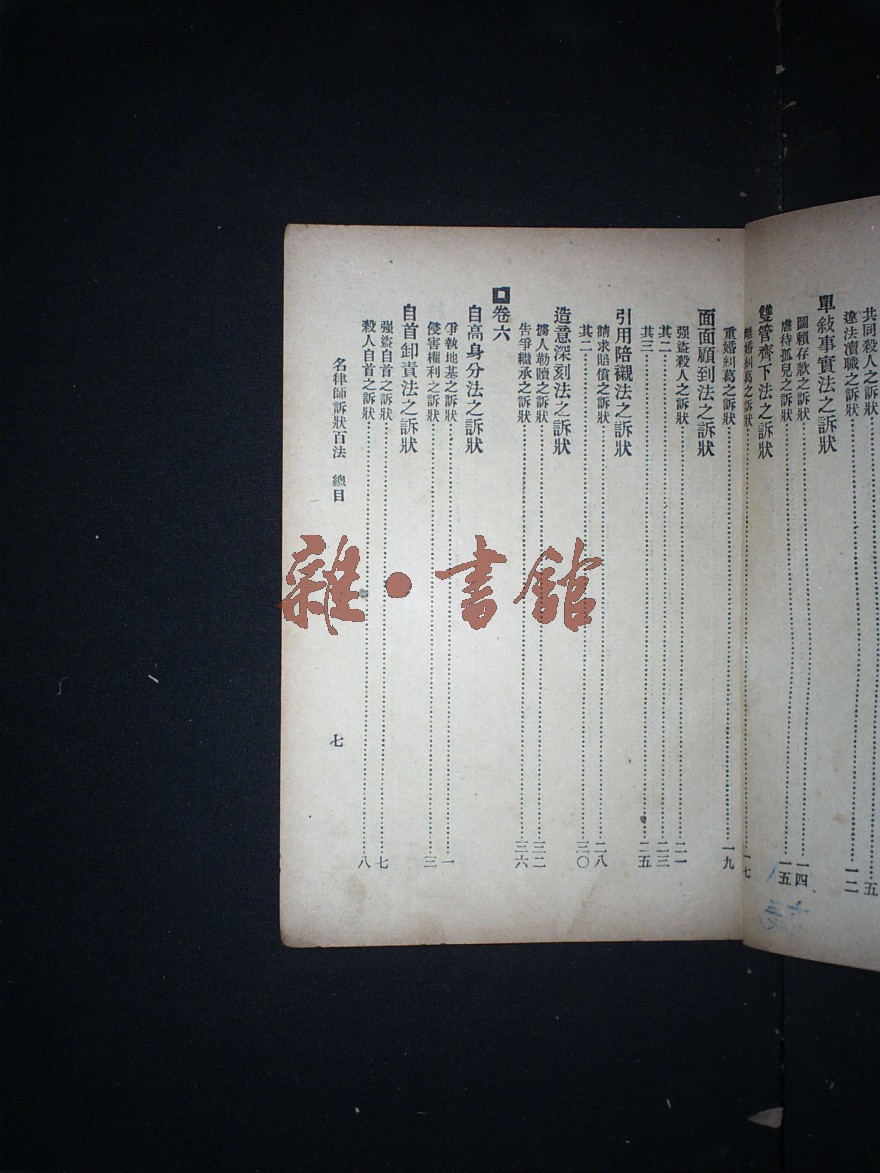 共同殺人之訴狀……五
違法瀆職之訴狀……一二
單敍事實法之訴狀
圖賴存款之訴狀……一四
虐待孤兒之訴狀……一五
雙管齊下法之訴狀
離婚糾葛之訴狀……一七
重婚糾葛之訴狀……一九
面面顧到法之訴狀
强盜殺人之訴狀……二一
其二……二三
其三……二五
引用陪襯法之訴狀
請求賠償之訴狀……二八
其二……三〇
造意深刻法之訴狀
擄人勒贖之訴狀……三二
告爭繼承之訴狀……三六
卷六
自高身分法之訴狀
爭執地基之訴狀……一
侵害權利之訴狀……三
自首卸責法之訴狀
强盜自首之訴狀……七
殺人自首之訴狀……八
名律師訴狀百法 總目
七
雜·書館